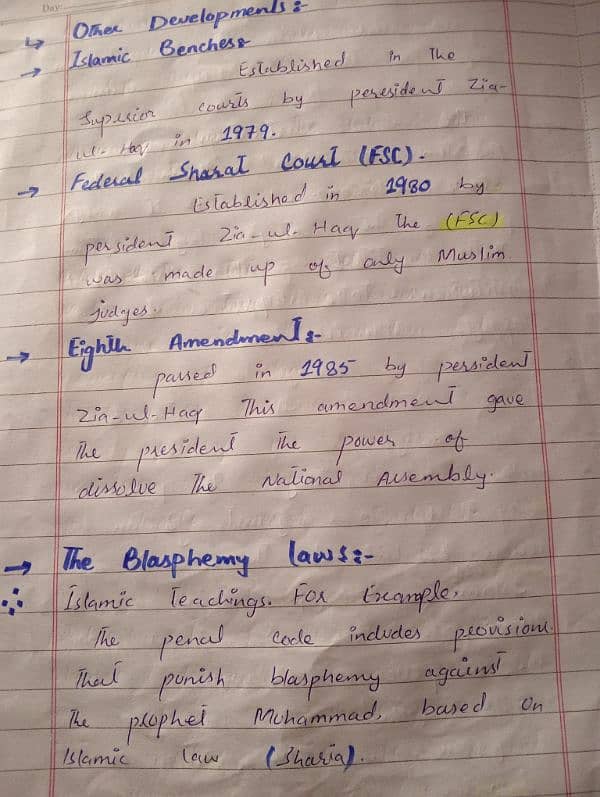 Day:
→ Other Developments:-
→ Islamic Benches:-
Established in The
Superior courts by peresident Zia-
ul-Haq in 1979.
→ Federal Shariat Court (FSC).
Established in 1980 by
persident Zia-ul-Haq The (FSC)
was made up of only Muslim
judges.
→ Eighth Amendment:-
passed in 1985 by persident
Zia-ul-Haq This amendment gave
The president The power of
dissolve The National Assembly.
→ The Blasphemy laws:-
Islamic Teachings. For Example,
The penal code includes provisions
That punish blasphemy against
The prophet Muhammad, based on
Islamic law (Sharia).